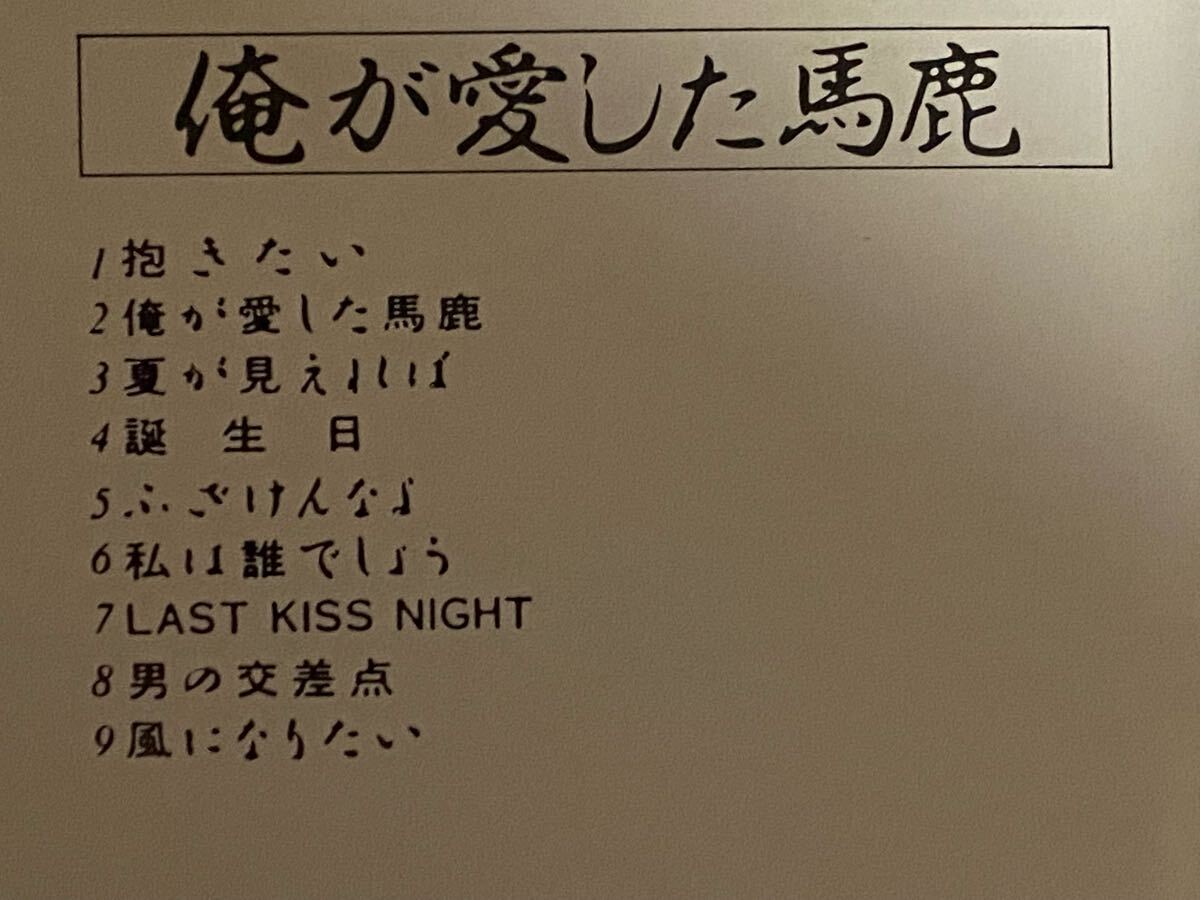 俺が愛した馬鹿
1 抱きたい
2 俺が愛した馬鹿
3 夏が見えれば
4 誕 生 日
5 ふざけんなよ
6 私は誰でしょう
7 LAST KISS NIGHT
8 男の交差点
9 風になりたい